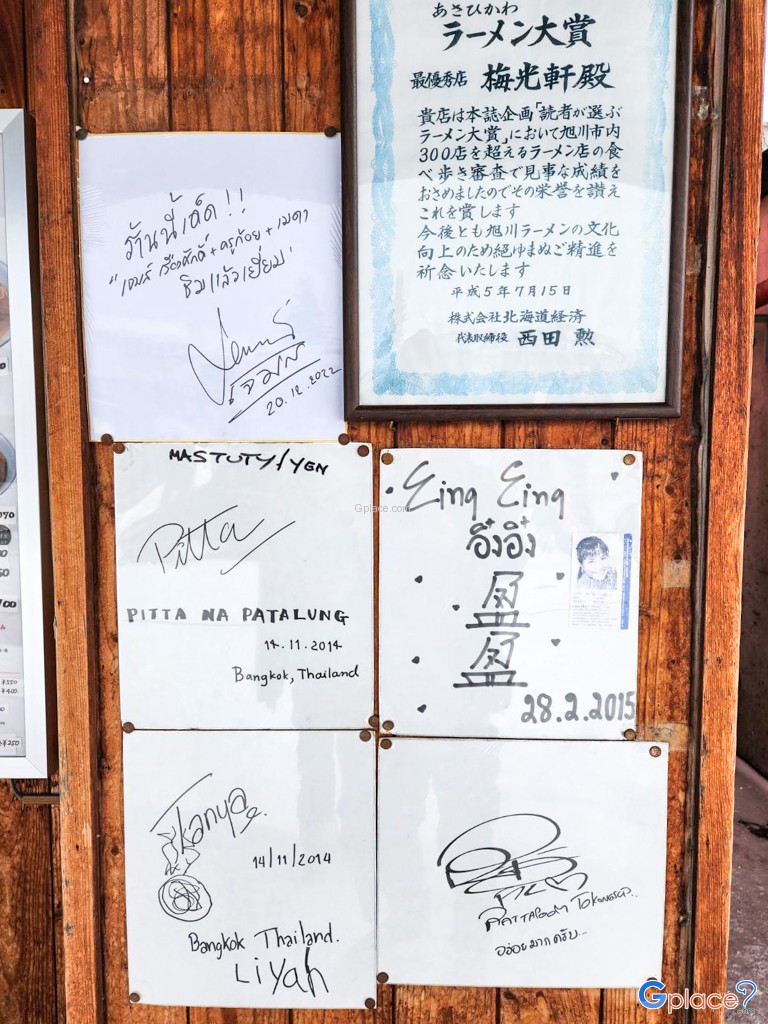 あさひかわ
ラーメン大賞
最優秀店 梅光軒殿
貴店は本誌企画「読者が選ぶ
ラーメン大賞」において旭川市内
300店を超えるラーメン店の食
べ歩き審査で見事な成績を
おさめましたのでその栄誉を讃え
これを賞します
今後とも旭川ラーメンの文化
向上のため絶ゆまぬご精進を
祈念いたします
平成5年7月15日
株式会社 北海道経済
代表取締役 西田 勲
ร้านนี้เด็ด!!
"เจมส์ เรืองศักดิ์ + ครูก้อย + เมดา
ชิมแล้วเยี่ยม"
เจมส์
20.12.2022
MASTUTY/YEN
Pitta
PITTA NA PATALUNG
14.11.2014
Bangkok, Thailand
Eing Eing
อิ๋งอิ๋ง
盈
盈
28.2.2015
Kanya
14/11/2014
Bangkok Thailand.
Liyah
อร่อยมากครับ...
070
50
¥550
¥400
¥250
Gplace.com
Gplace?